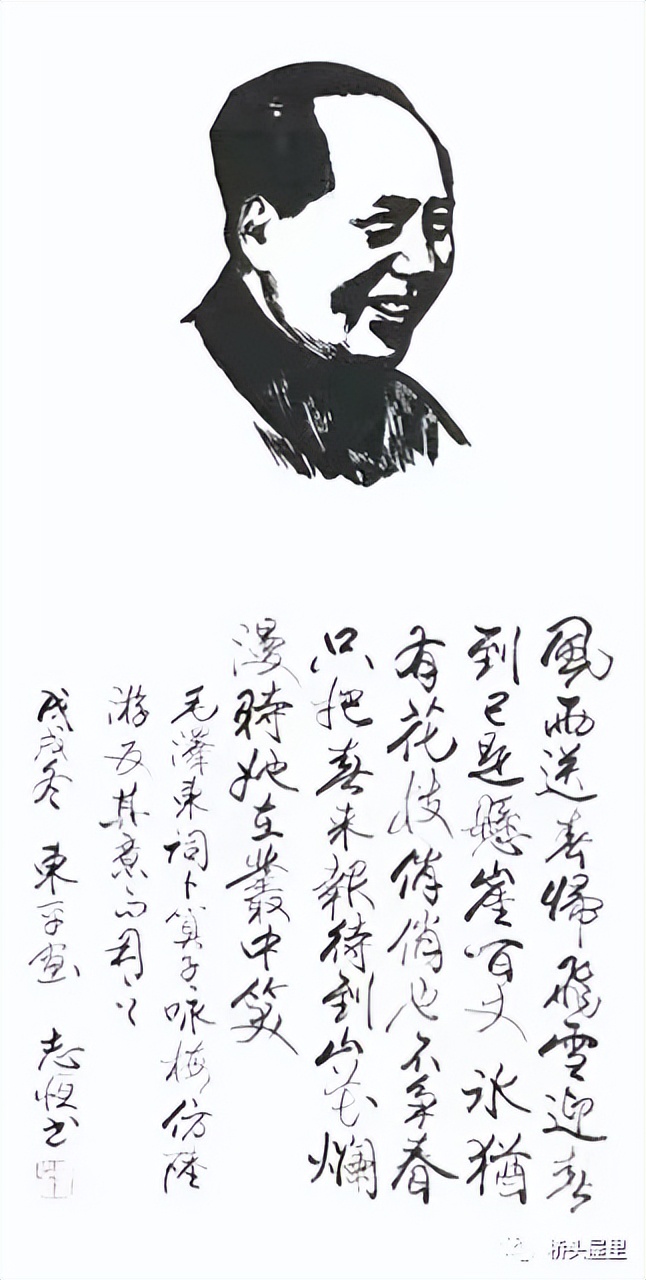 風雨送春歸飛雪迎春
到已是懸崖百丈冰猶
有花枝俏俏也不争春
只把春來報待到山花爛
漫時她在叢中笑
毛澤東詞卜算子咏梅仿陸
游反其意而用之
戊戌冬 東平畫 志恒书
桥头屋里